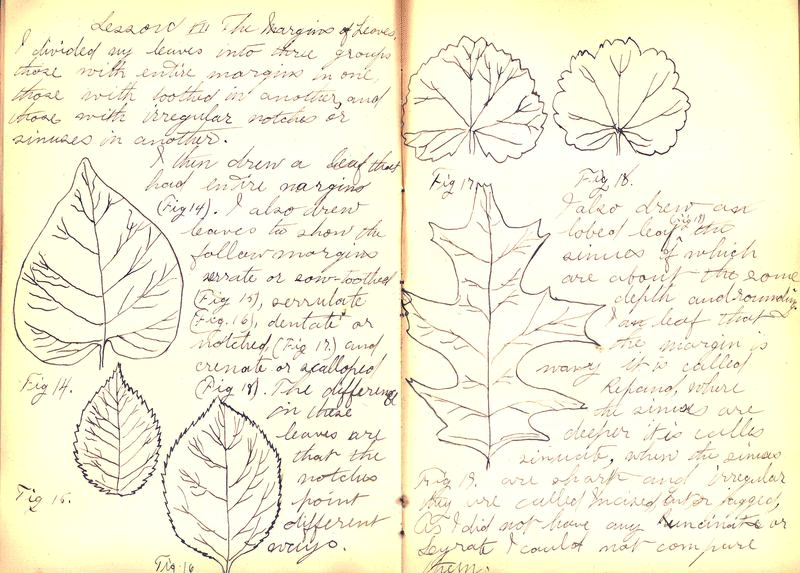 Lesson VII The Margins of Leaves.
I divided my leaves into three groups
those with entire margins in one,
those with toothed in another, and
those with irregular notches or
sinuses in another.
I then drew a leaf that
had entire margins
(Fig 14). I also drew
leaves to show the
follow margins
serrate or saw-toothed
(Fig 15), serrulate
(Fig. 16), dentate or
notched (Fig 17) and
crenate or scalloped
(Fig 18). The difference
in these
leaves are
that the
notches
point
different
ways.
Fig 14.
Fig 15.
Fig. 16
Fig 17.
Fig. 18.
I also drew an
lobed leaf (Fig 19) the
sinuses of which
are about the same
depth and rounding
In leaf that
the margin is
wavy it is called
Repand, where
the sinuses are
deeper it is called
sinuate, when the sinuses
Fig. 19. are sharp and irregular
they are called Incised cut or jagged,
As I did not have any Runcinate or
Lyrate I could not compare
them.